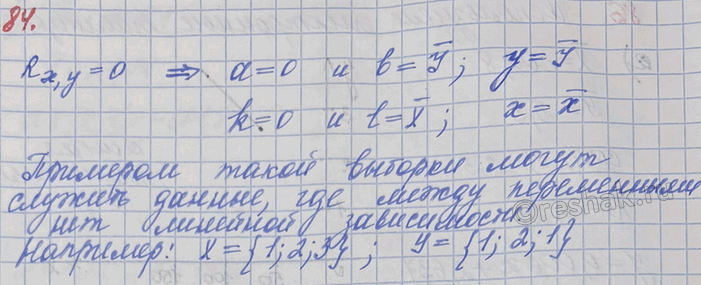 84.
R x,y = 0 ⇒ a = 0 и b = ȳ; y = ȳ
k = 0 и l = x̄; x = x̄
Примером такой выборки могут
служить данные, где между переменными
нет линейной зависимости
Например: X = {1; 2; 3}; Y = {1; 2; 1}
©reshak.ru